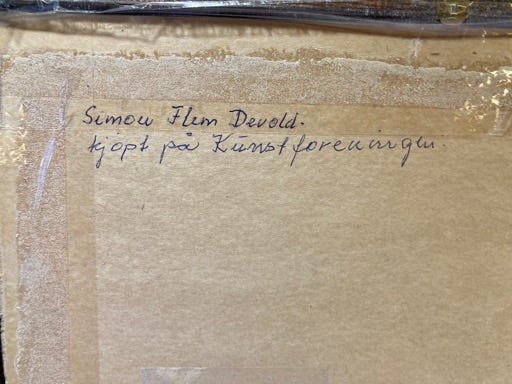 Simon Flem Devold.
kjöpt på Kunstforeningen.